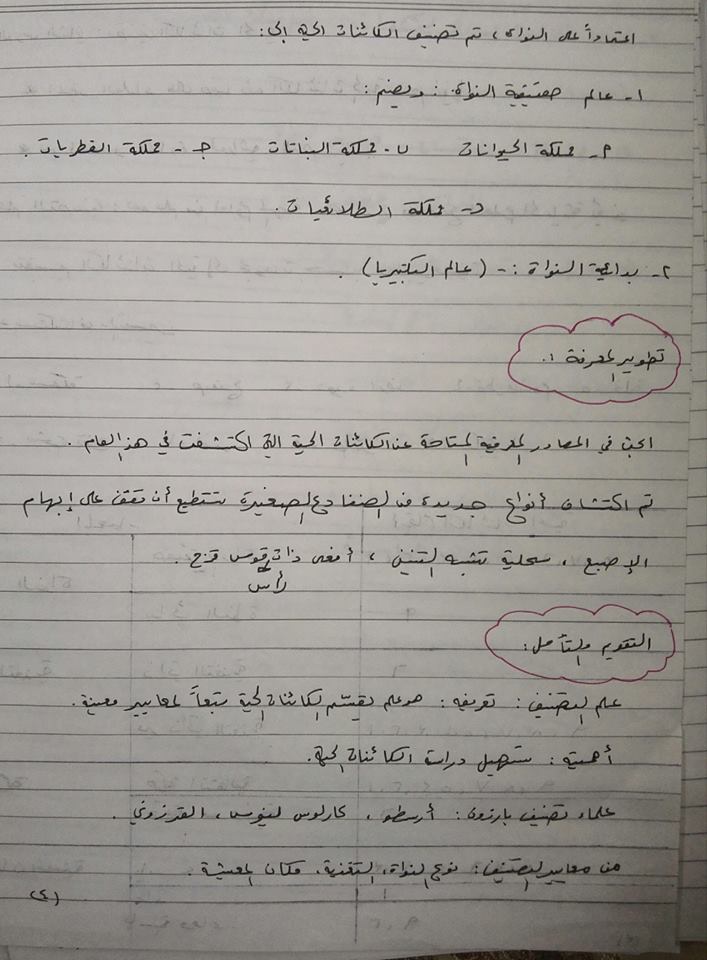 اعتماداً على النواة، تم تصنيف الكائنات الحية إلى:
١- عالم حقيقية النواة: ويضم:
أ- مملكة الحيوانات ب- مملكة النباتات جـ- مملكة الفطريات.
د- مملكة الطلائعيات.
٢- بدائية النواة :- (عالم البكتيريا).
تطوير المعرفة:
ابحث في المصادر المعرفية المتاحة عن الكائنات الحية التي اكتشفت في هذا العام.
تم اكتشاف أنواع جديدة من الضفادع الصغيرة تستطيع أن تقف على إبهام
الإصبع، سحلية تشبه التنين، أفعى ذات رأس قوس قزح.
التقويم والتأمل:
علم التصنيف: تعريفه: هو علم يقسّم الكائنات الحية تبعاً لمعايير معينة.
أهميته: تسهيل دراسة الكائنات الحية.
علماء تصنيف بارزون: أرسطو، كارلوس لينيوس، القزويني.
من معايير التصنيف: نوع النواة، التغذية، مكان المعيشة.
(٤)